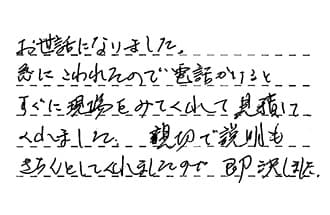 お世話になりました。
急にこわれたので電話かけると
すぐに現場をみてくれて見積して
くれました。親切で説明も
きちんとしてくれましたので即決しました。